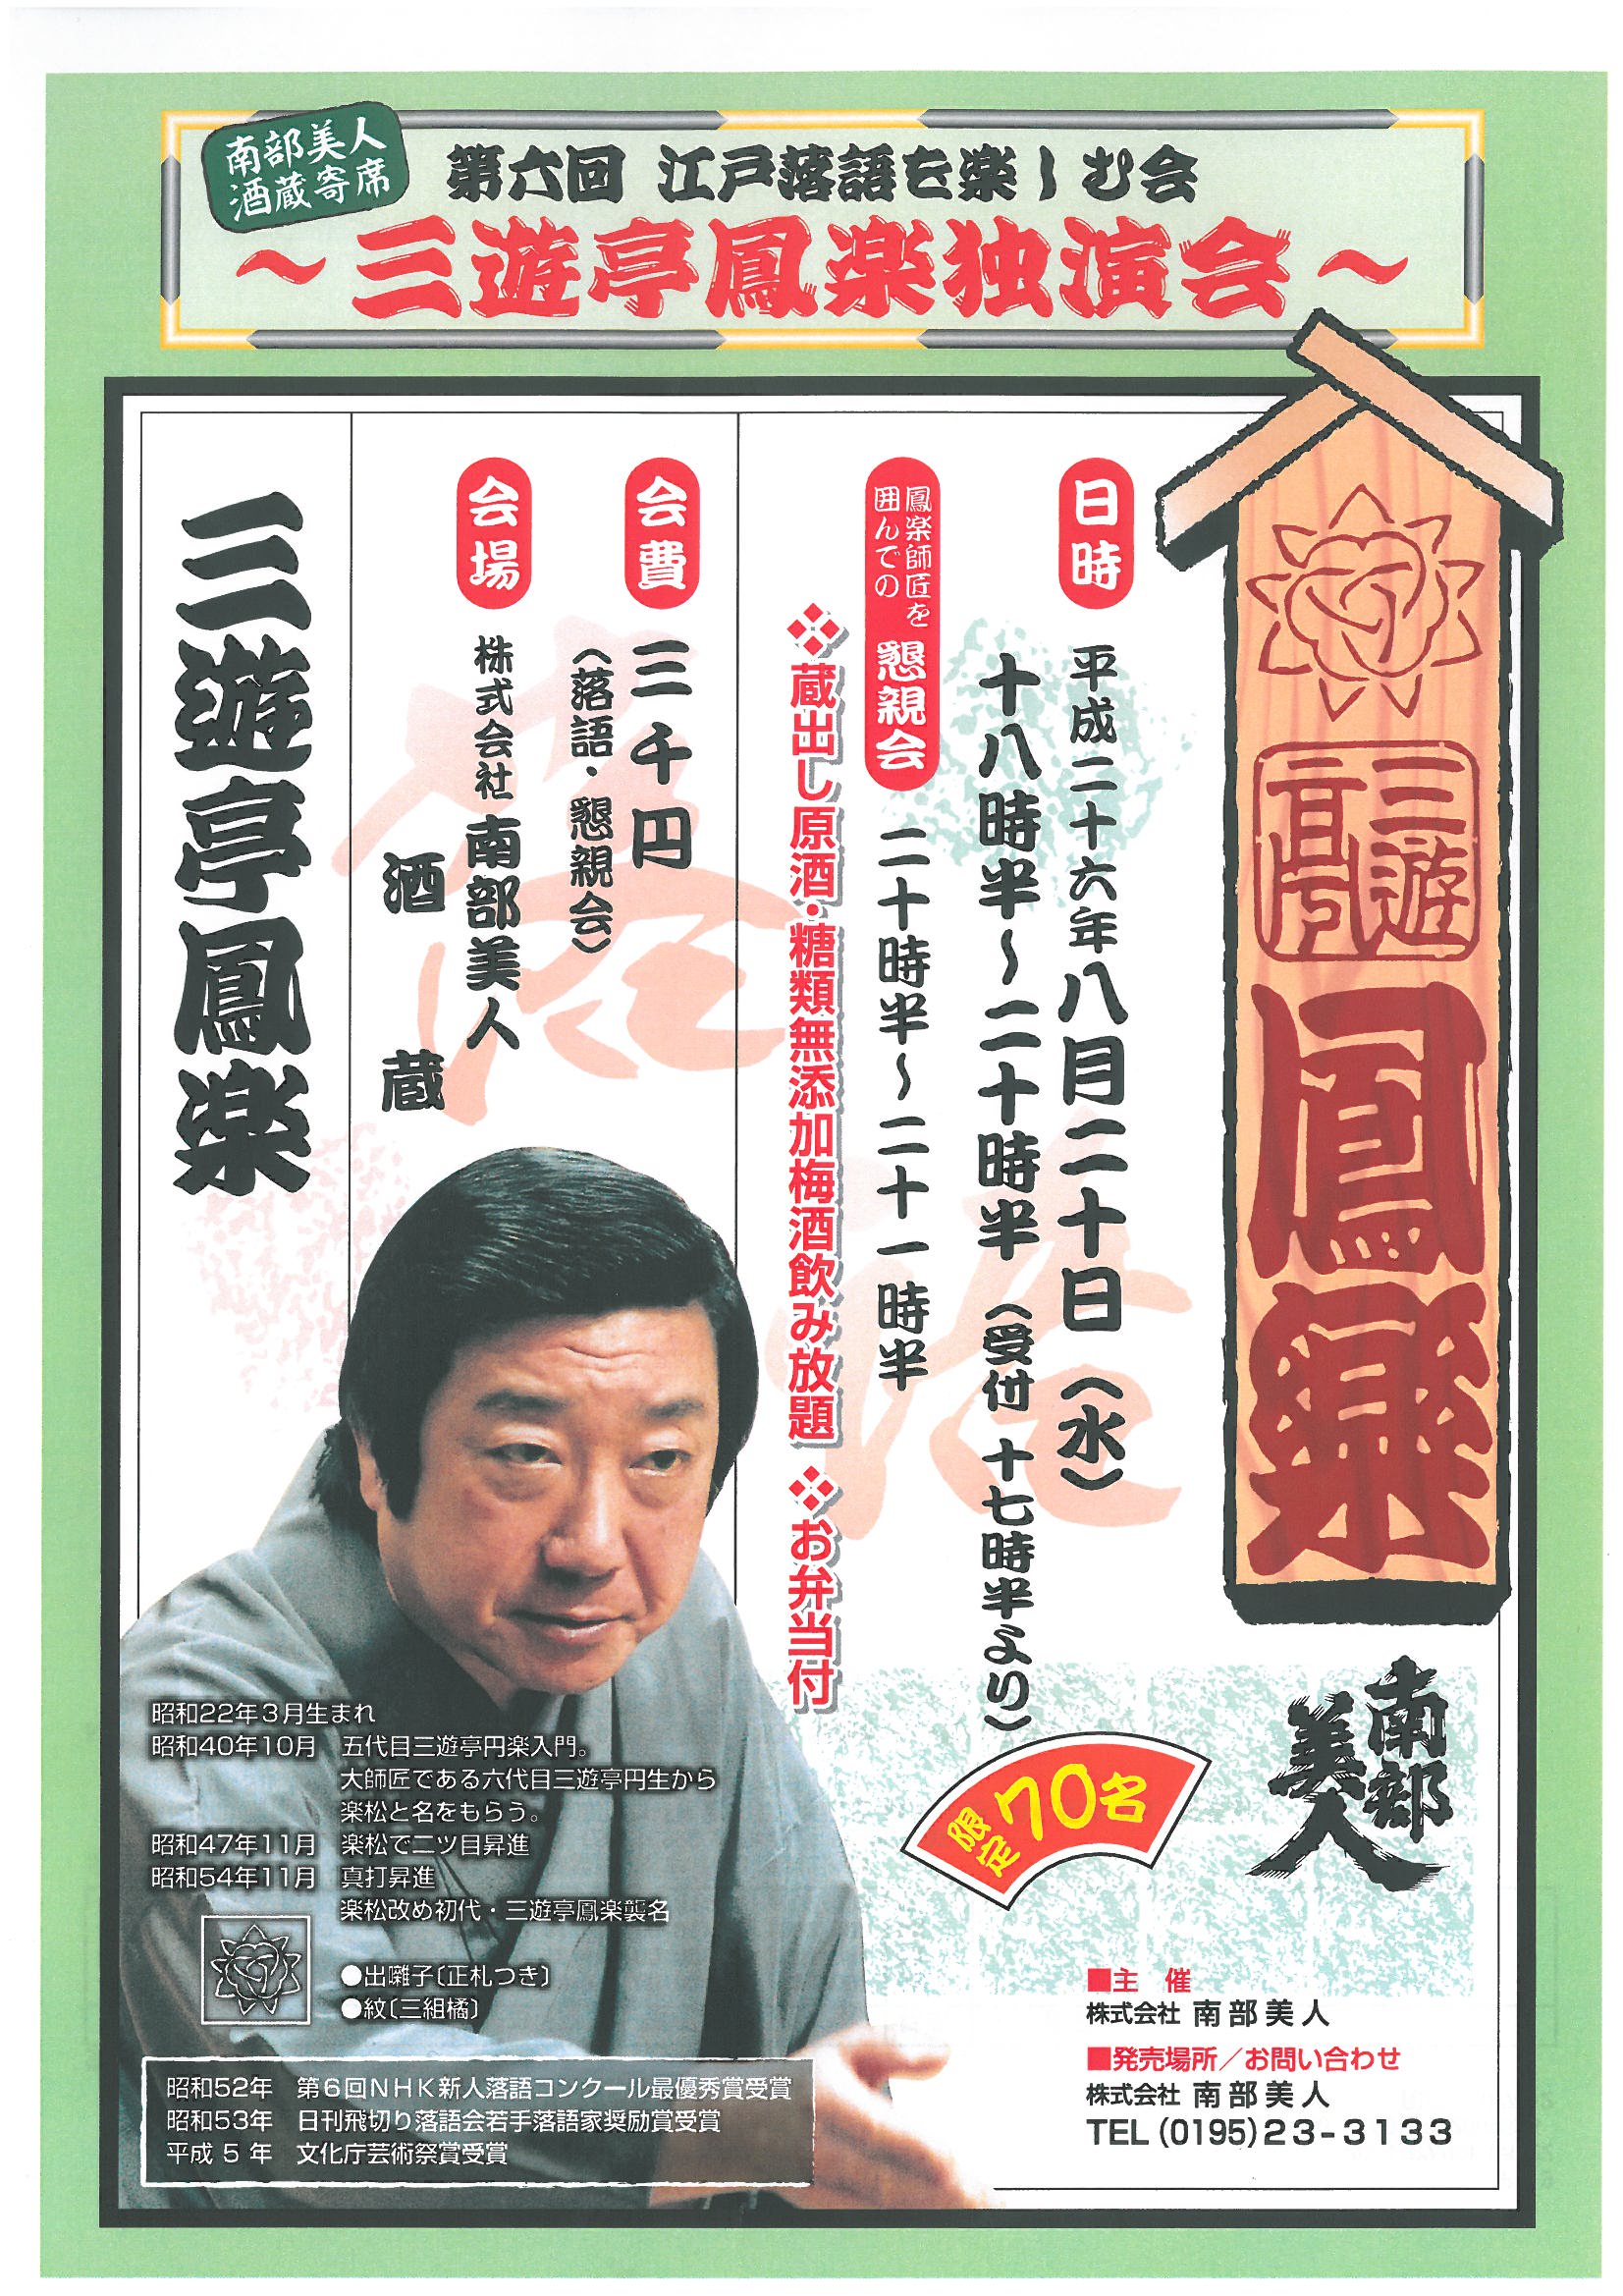 南部美人
酒蔵寄席
第六回 江戸落語を楽しむ会
～三遊亭鳳楽独演会～
三遊亭
鳳楽
日時
平成二十六年八月二十日（水）
十八時半～二十時半（受付 十七時半より）
鳳楽師匠を
囲んでの
懇親会
二十時半～二十一時半
❖蔵出し原酒・糖類無添加梅酒飲み放題 ❖お弁当付
会費
三千円
（落語・懇親会）
会場
株式会社 南部美人
酒蔵
三遊亭鳳楽
南部
美人
限定70名
昭和22年3月生まれ
昭和40年10月 五代目三遊亭円楽入門。
大師匠である六代目三遊亭円生から
楽松と名をもらう。
昭和47年11月 楽松で二ツ目昇進
昭和54年11月 真打昇進
楽松改め初代・三遊亭鳳楽襲名
●出囃子〔正札つき〕
●紋〔三組橘〕
昭和52年 第6回NHK新人落語コンクール最優秀賞受賞
昭和53年 日刊飛切り落語会若手落語家奨励賞受賞
平成5年 文化庁芸術祭賞受賞
■主 催
株式会社 南部美人
■発売場所／お問い合わせ
株式会社 南部美人
TEL (0195)23-3133